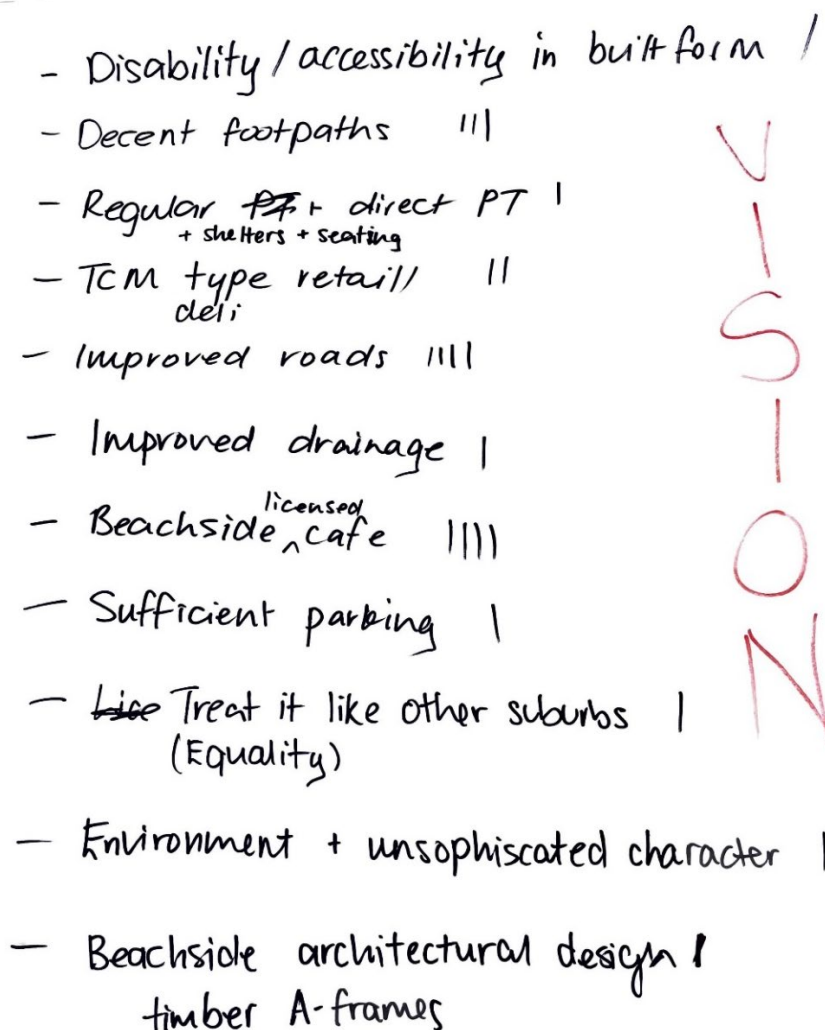 - Disability / accessibility in built form /
- Decent footpaths |||
- Regular + direct PT |
+ shelters + seating
- TCM type retail// ||
deli
- Improved roads ||||
- Improved drainage |
- Beachside licensed cafe ||||
- Sufficient parking |
- Treat it like other suburbs |
(Equality)
- Environment + unsophiscated character |
- Beachside architectural design |
timber A-frames
VISION